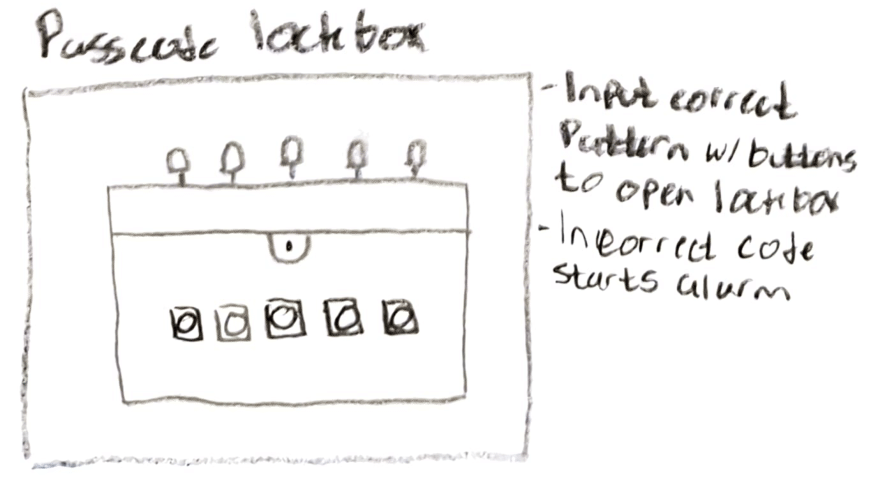 Passcode lockbox
- Input correct
Pattern w/ buttons
to open lockbox
- Incorrect code
starts alarm